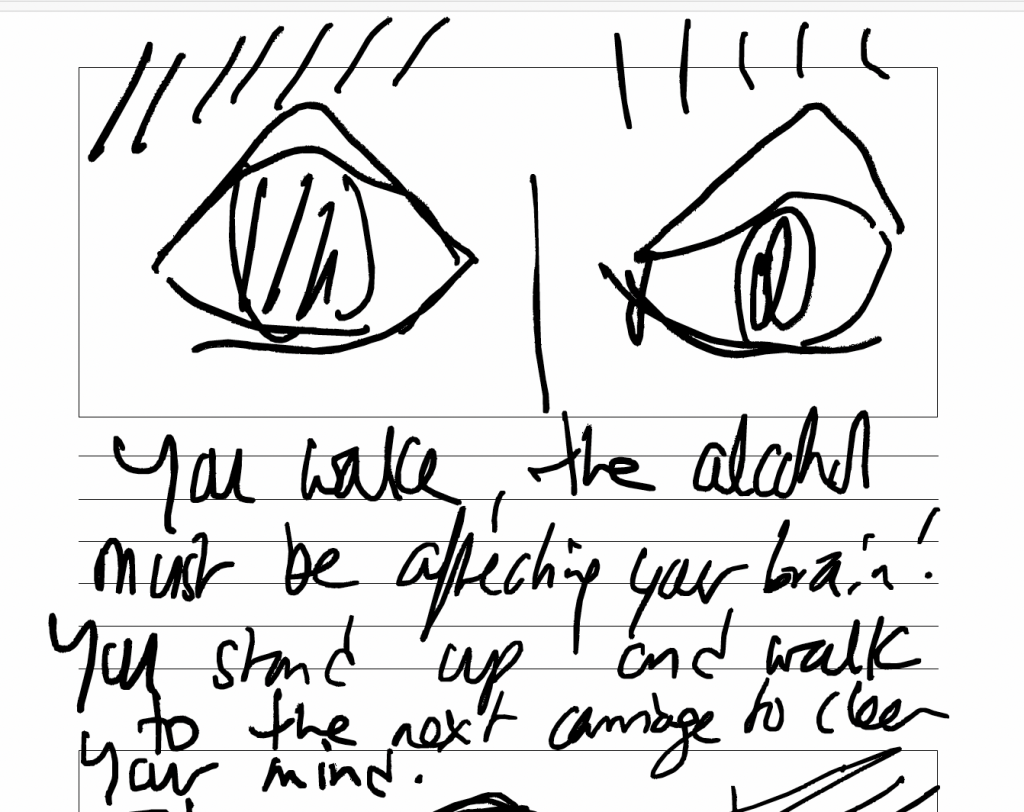 You wake, the alcohol
must be affecting your brain!
You stand up and walk
to the next carriage to clear
your mind.